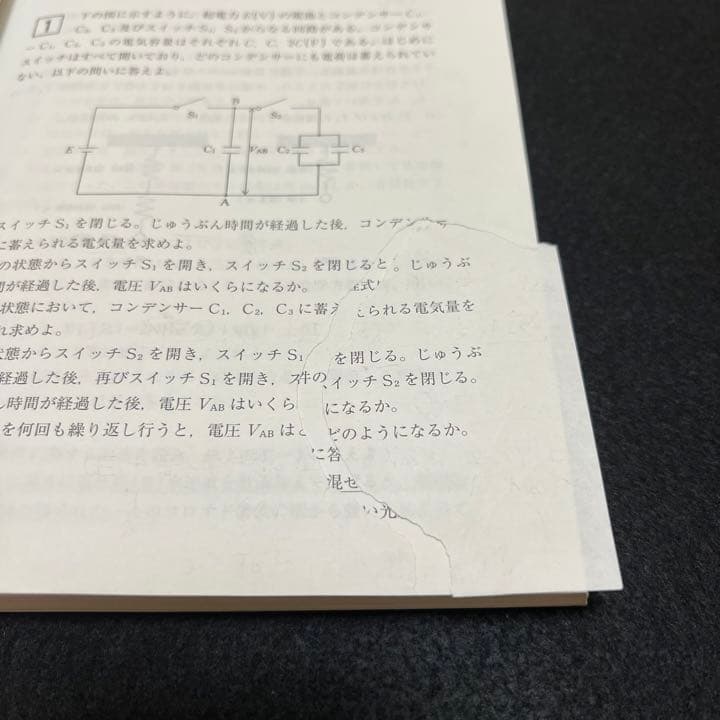 1
下の図に示すように，起電力E〔V〕の電池とコンデンサーC₁，
C₂，C₃及びスイッチS₁，S₂からなる回路がある。コンデンサ
ーC₁，C₂，C₃の電気容量はそれぞれC，C，2C〔F〕である。はじめに
スイッチはすべて開いており，どのコンデンサーにも電荷は蓄えられてい
ない。以下の問いに答えよ。
S₁ B S₂
E C₁ V_AB C₂ C₃
A
スイッチS₁を閉じる。じゅうぶん時間が経過した後，コンデン
に蓄えられる電気量を求めよ。
の状態からスイッチS₁を開き，スイッチS₂を閉じると。じゅうぶ
間が経過した後，電圧V_ABはいくらになるか。
状態において，コンデンサーC₁，C₂，C₃に蓄えられる電気量を
れ求めよ。
状態からスイッチS₂を開き，スイッチS₁を閉じる。じゅうぶ
経過した後，再びスイッチS₁を開き，スイッチS₂を閉じる。
ん時間が経過した後，電圧V_ABはいくらになるか。
を何回も繰り返し行うと，電圧V_ABはどのようになるか。
に答
混せ
い光